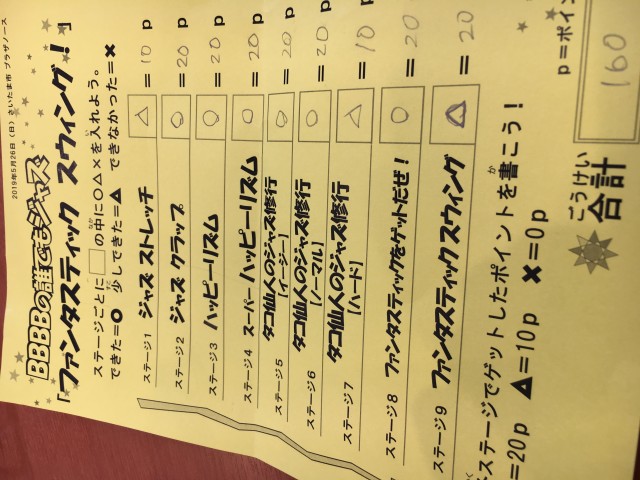 2019年5月26日(日)さいたま市 プラザノース
BBBBの誰でもジャズ
「ファンタスティック スウィング!」
ステージごとに□の中に○△×を入れよう。
できた=○ 少しできた=▲ できなかった=✖
ステージ1 ジャズ ストレッチ △ =10 p
ステージ2 ジャズ クラップ ○ =20 p
ステージ3 ハッピーリズム ○ =20 p
ステージ4 スーパー ハッピーリズム ○ =20 p
ステージ5 タコ仙人のジャズ修行[イージー] ○ =20 p
ステージ6 タコ仙人のジャズ修行[ノーマル] ○ =20 p
ステージ7 タコ仙人のジャズ修行[ハード] △ =10 p
ステージ8 ファンタスティックをゲットだぜ! ○ =20
ステージ9 ファンタスティック スウィング △ =20
ステージでゲットしたポイントを書こう!
=20p ▲=10p ✖=0p
p=ポイン
ごうけい
合計 160